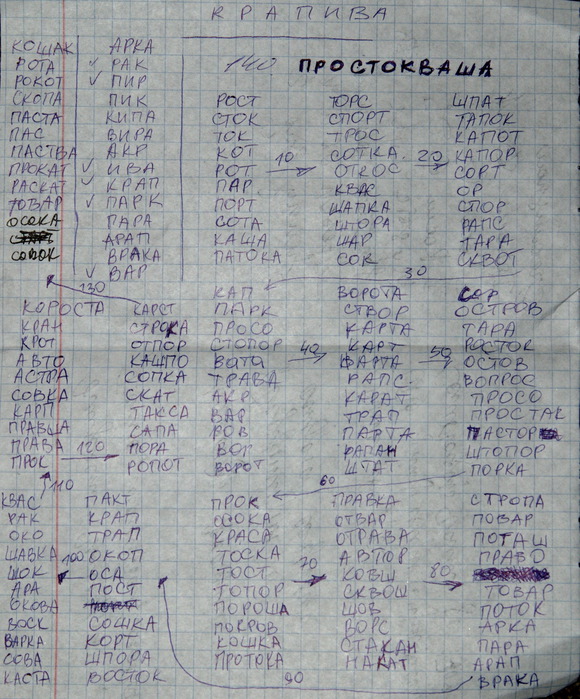 КРАПИВА
КОШАК АРКА
РОТА РАК 140 ПРОСТОКВАША
РОКОТ ПИР
СКОПА ПИК РОСТ ТОРС ШПАТ
ПАСТА КИПА СТОК СПОРТ ТАПОК
ПАС ВИРА ТОК ТРОС КАПОТ
ПАСТВА АКР КОТ СОТКА 20 КАПОР
ПРОКАТ ИВА РОТ 10 ОТКОС СОРТ
РАСКАТ КРАП ПАР КВАС ОР
ТОВАР ПАРК ПОРТ ШАПКА СПОР
ОСОКА ПАРА СОТА ШТОРА РАПС
АРАП КАША ШАР ТАРА
СОВОК ВРАКА ПАТОКА СОК СКВОТ
ВАР 30
130 КАП ВОРОТА САР
КОРОСТА КАРСТ ПАРК СТВОР ОСТРОВ
КРАН СТРОКА ПРОСО КАРТА ТАРА
КРОТ ОТПОР СТОПОР КАРТ РОСТОК
АВТО КАШПО ВАТА 40 ВАРТА 50 ОСТОВ
АСТРА СОПКА ТРАВА РАПС ВОПРОС
СОВКА СКАТ АКР КАРАТ ПРОСО
КАРП ТАКСА ВАР ТРАП ПРОСТАК
ПРАВША САПА РОВ ПАРТА ПАСТОР
ПРАВА 120 ПОРА ВОР РАПАН ШТОПОР
ПРОС РОПОТ ВОРОТ ШТАТ ПОРКА
110 60
КВАС ПАКТ ПРОК ПРАВКА СТРОПА
РАК КРАП ОСОКА ОТВАР ПОВАР
ОКО ТРАП КРАСА ОТРАВА ПОТАШ
ШАВКА 100 ОКОП ТОСКА АВТОР ПРАВО
ШОК ОСА ТОСТ 70 КОВШ 80
АРА ПОСТ ТОПОР СКВОШ ТОВАР
ОКОВА ПОРОША ШОВ ПОТОК
ВОСК СОШКА ПОКРОВ ВОРС АРКА
ВАРКА КОРТ КОШКА СТАКАН ПАРА
СОВА ШПОРА ПРОТОКА НАКАТ АРАП
КАСТА ВОСТОК 90 ВРАКА